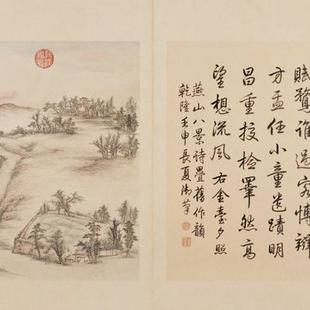 賦鶩誰過客博辯
方盂任小童遺蹟明
昌重校檢睪然高
望想流風右金臺夕照
燕山八景詩疊舊作韻
乾隆壬申長夏御筆